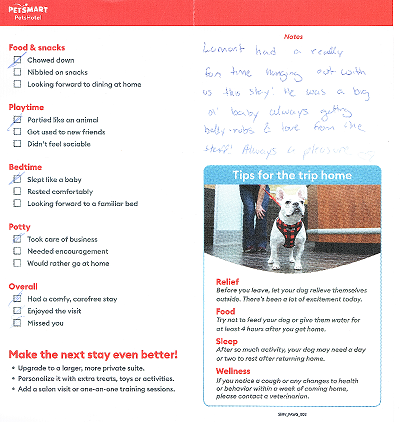 PETSMART
PetsHotel
Food & snacks
Chowed down
Nibbled on snacks
Looking forward to dining at home
Playtime
Partied like an animal
Got used to new friends
Didn't feel sociable
Bedtime
Slept like a baby
Rested comfortably
Looking forward to a familiar bed
Potty
Took care of business
Needed encouragement
Would rather go at home
Overall
Had a comfy, carefree stay
Enjoyed the visit
Missed you
Make the next stay even better!
• Upgrade to a larger, more private suite.
• Personalize it with extra treats, toys or activities.
• Add a salon visit or one-on-one training sessions.
Notes
had a really
fun time hanging out with
us this stay! He was a big
ol' baby always getting
belly rubs & love from the
staff! Always a pleasure
Tips for the trip home
Relief
Before you leave, let your dog relieve themselves
outside. There's been a lot of excitement today.
Food
Try not to feed your dog or give them water for
at least 4 hours after you get home.
Sleep
After so much activity, your dog may need a day
or two to rest after returning home.
Wellness
If you notice a cough or any changes to health
or behavior within a week of coming home,
please contact a veterinarian.